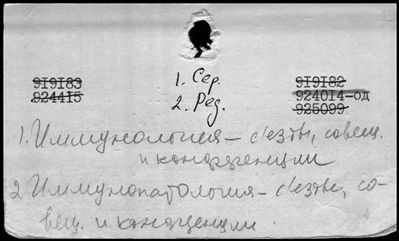 919183
924415
1. Сер.
2. Рез.
919182
924014-од
925099
1. Иммунология – съезды, совещ.
и конференции
2 Иммунопатология – съезды, со-
вещ. и конференции.